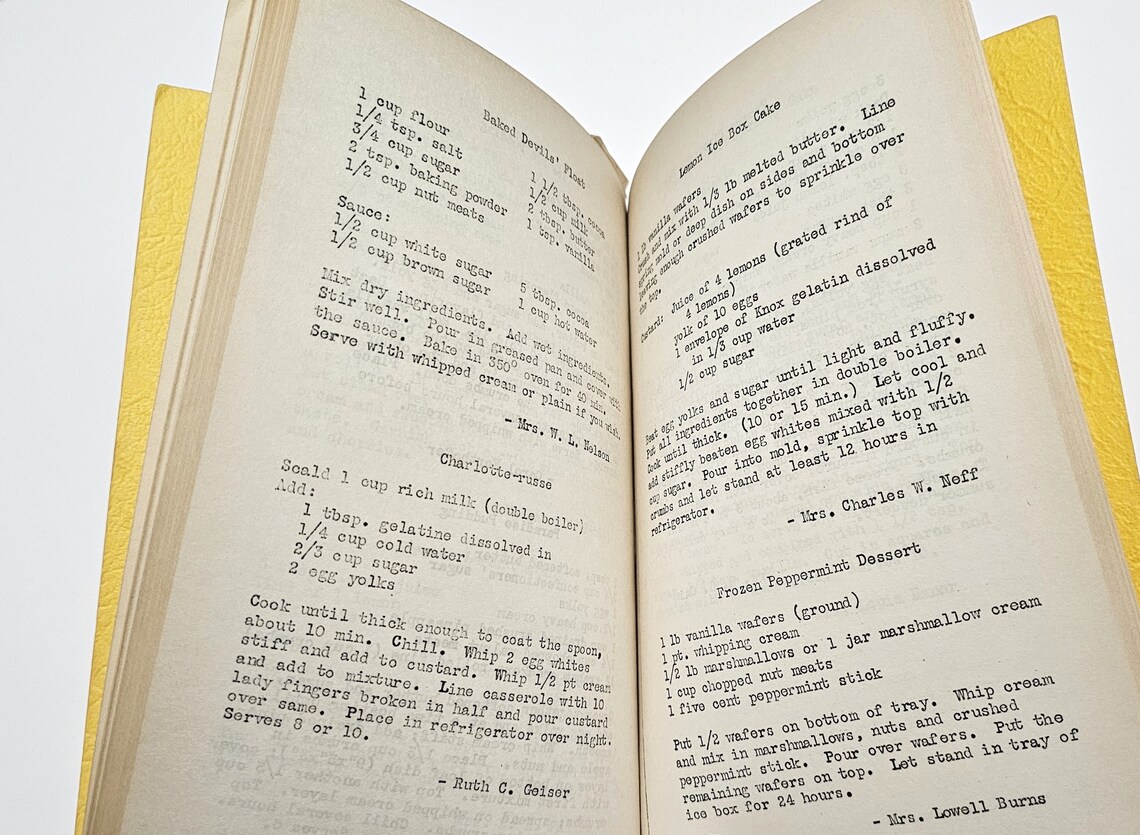 Baked Devils' Float
1 cup flour
1/4 tsp. salt
3/4 cup sugar
2 tsp. baking powder
1/2 cup nut meats
1 1/2 tbsp. cocoa
1/2 cup milk
2 tbsp. butter
1 tsp. vanilla
Sauce:
1/2 cup white sugar
1/2 cup brown sugar
5 tbsp. cocoa
1 cup hot water
Mix dry ingredients. Add wet ingredients.
Stir well. Pour in greased pan and cover with
the sauce. Bake in 350° oven for 40 min.
Serve with whipped cream or plain if you wish.
- Mrs. W. L. Nelson
Charlotte-russe
Scald 1 cup rich milk (double boiler)
Add:
1 tbsp. gelatine dissolved in
1/4 cup cold water
2/3 cup sugar
2 egg yolks
Cook until thick enough to coat the spoon,
about 10 min. Chill. Whip 2 egg whites
stiff and add to custard. Whip 1/2 pt cream
and add to mixture. Line casserole with 10
lady fingers broken in half and pour custard
over same. Place in refrigerator over night.
Serves 8 or 10.
- Ruth C. Geiser
Lemon Ice Box Cake
1 lb vanilla wafers
Crush and mix with 1/3 lb melted butter. Line
spring mold or deep dish on sides and bottom
leaving enough crushed wafers to sprinkle over
the top.
Custard: Juice of 4 lemons (grated rind of
4 lemons)
yolk of 10 eggs
1 envelope of Knox gelatin dissolved
in 1/3 cup water
1/2 cup sugar
Beat egg yolks and sugar until light and fluffy.
Put all ingredients together in double boiler.
Cook until thick. (10 or 15 min.) Let cool and
add stiffly beaten egg whites mixed with 1/2
cup sugar. Pour into mold, sprinkle top with
crumbs and let stand at least 12 hours in
refrigerator.
- Mrs. Charles W. Neff
Frozen Peppermint Dessert
1 lb vanilla wafers (ground)
1 pt. whipping cream
1/2 lb marshmallows or 1 jar marshmallow cream
1 cup chopped nut meats
1 five cent peppermint stick
Put 1/2 wafers on bottom of tray. Whip cream
and mix in marshmallows, nuts and crushed
peppermint stick. Pour over wafers. Put the
remaining wafers on top. Let stand in tray of
ice box for 24 hours.
- Mrs. Lowell Burns